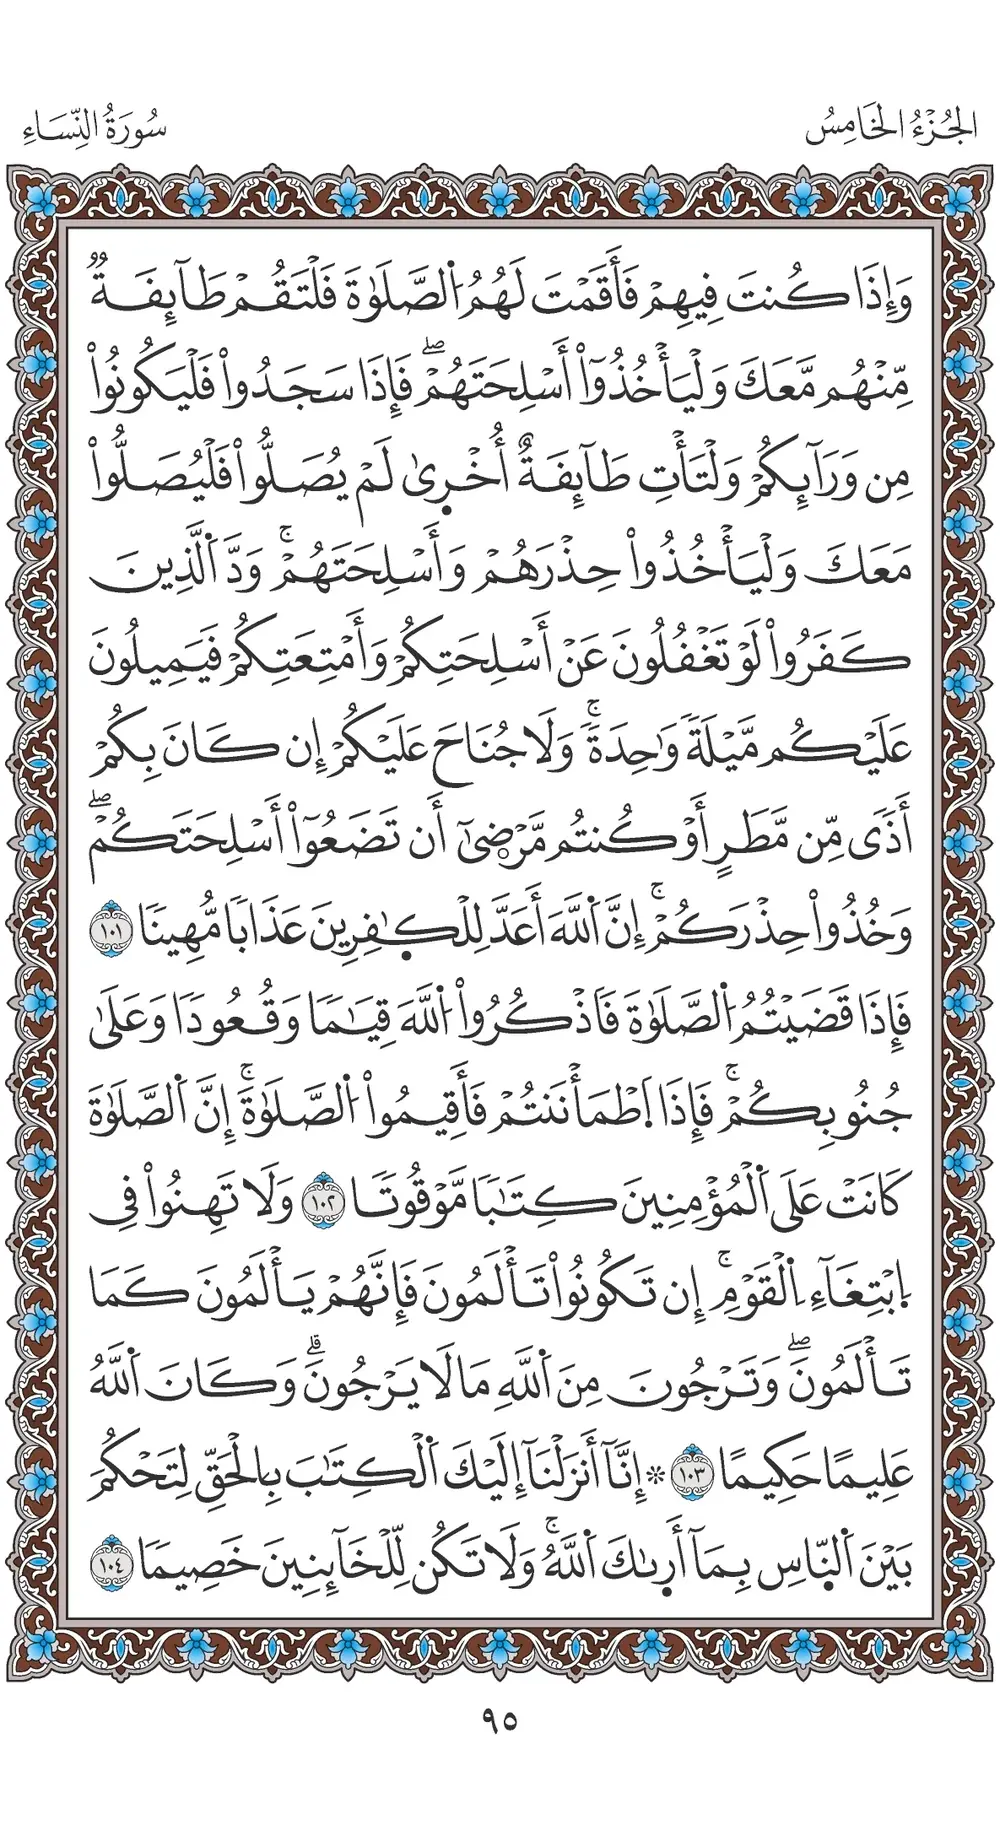 الجُزْءُ الخَامِسُ
سُورَةُ النِّسَاءِ
وَإِذَا كُنتَ فِيهِمْ فَأَقَمْتَ لَهُمُ اَ۬لصَّلَوٰةَ فَلْتَقُمْ طَآئِفَةٌ
مِّنْهُم مَّعَكَ وَلْيَأْخُذُوٓاْ أَسْلِحَتَهُمْۖ فَإِذَا سَجَدُواْ فَلْيَكُونُواْ
مِن وَرَآئِكُمْ وَلْتَأْتِ طَآئِفَةٌ أُخْر۪يٰ لَمْ يُصَلُّواْ فَلْيُصَلُّواْ
مَعَكَ وَلْيَأْخُذُواْ حِذْرَهُمْ وَأَسْلِحَتَهُمْۚ وَدَّ اَ۬لَّذِينَ
كَفَرُواْ لَوْ تَغْفُلُونَ عَنْ أَسْلِحَتِكُمْ وَأَمْتِعَتِكُمْ فَيَمِيلُونَ
عَلَيْكُم مَّيْلَةٗ وَٰحِدَةٗۚ وَلَا جُنَاحَ عَلَيْكُمْ إِن كَانَ بِكُمْ
أَذٗى مِّن مَّطَرٍ أَوْ كُنتُم مَّرْض۪ىٰٓ أَن تَضَعُوٓاْ أَسْلِحَتَكُمْۖ
وَخُذُواْ حِذْرَكُمْۚ إِنَّ اَ۬للَّهَ أَعَدَّ لِلْكٰ۪فِرِينَ عَذَابٗا مُّهِينٗا ١٠١
فَإِذَا قَضَيْتُمُ اُ۬لصَّلَوٰةَ فَاذْكُرُواْ اُ۬للَّهَ قِيَٰمٗا وَقُعُودٗا وَعَلَىٰ
جُنُوبِكُمْۚ فَإِذَا اَ۪طْمَأْنَنتُمْ فَأَقِيمُواْ اُ۬لصَّلَوٰةَۚ إِنَّ اَ۬لصَّلَوٰةَ
كَانَتْ عَلَى اَ۬لْمُؤْمِنِينَ كِتَٰبٗا مَّوْقُوتٗا ١٠٢ وَلَا تَهِنُواْ فِي
اِ۪بْتِغَآءِ اِ۬لْقَوْمِۚ إِن تَكُونُواْ تَأْلَمُونَ فَإِنَّهُمْ يَأْلَمُونَ كَمَا
تَأْلَمُونَۖ وَتَرْجُونَ مِنَ اَ۬للَّهِ مَا لَا يَرْجُونَۗ وَكَانَ اَ۬للَّهُ
عَلِيمًا حَكِيمًا ١٠٣ ۞ إِنَّآ أَنزَلْنَآ إِلَيْكَ اَ۬لْكِتَٰبَ بِالْحَقِّ لِتَحْكُمَ
بَيْنَ اَ۬لنَّاسِ بِمَآ أَر۪ىٰكَ اَ۬للَّهُۚ وَلَا تَكُن لِّلْخَآئِنِينَ خَصِيمٗا ١٠٤
٩٥